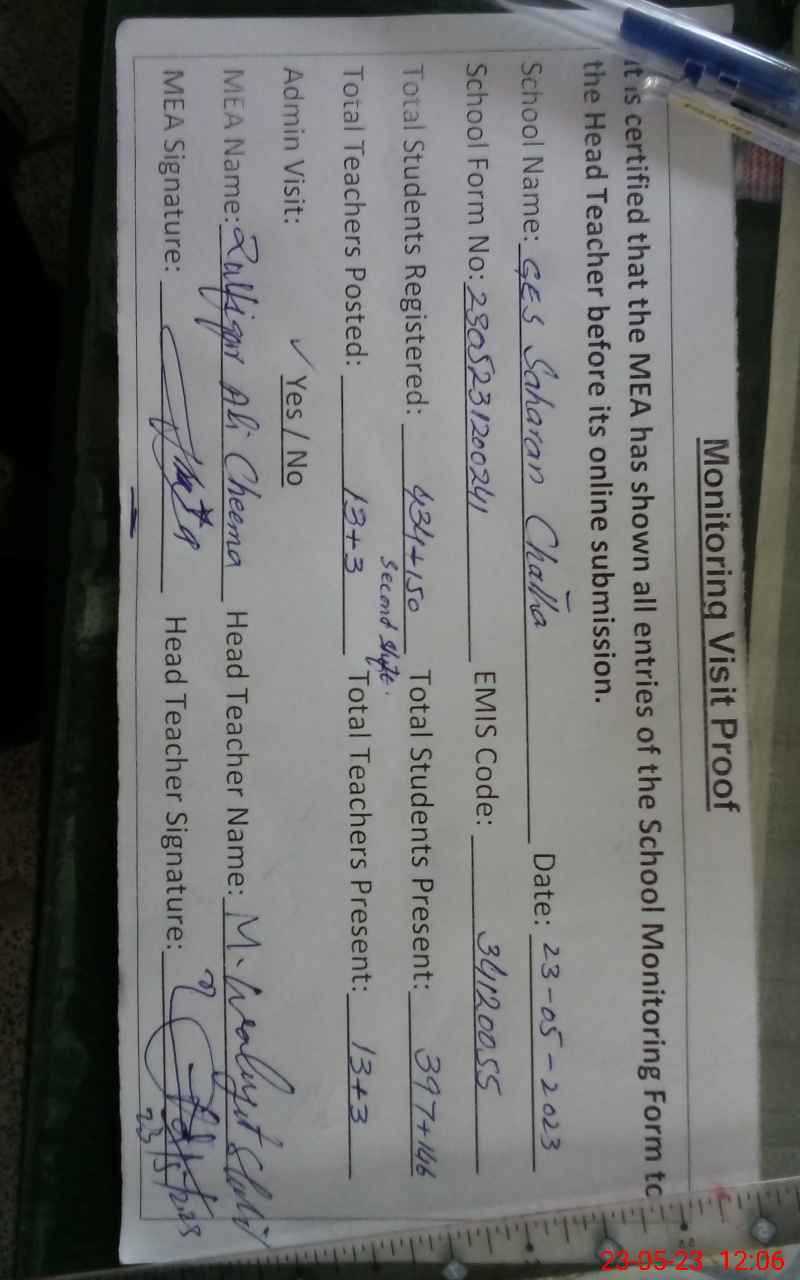 Monitoring Visit Proof
it is certified that the MEA has shown all entries of the School Monitoring Form to
the Head Teacher before its online submission.
School Name: GES Saharan Chatha Date: 23-05-2023
School Form No: 230523120024 EMIS Code: 34120055
Total Students Registered: 434+150 Total Students Present: 397+146
second shift.
Total Teachers Posted: 13+3 Total Teachers Present: 13+3
Admin Visit: ✓ Yes / No
MEA Name: Zulfiqar Ali Cheema Head Teacher Name: M.
MEA Signature: Head Teacher Signature:
23/5/2023
23-05-23 12:06